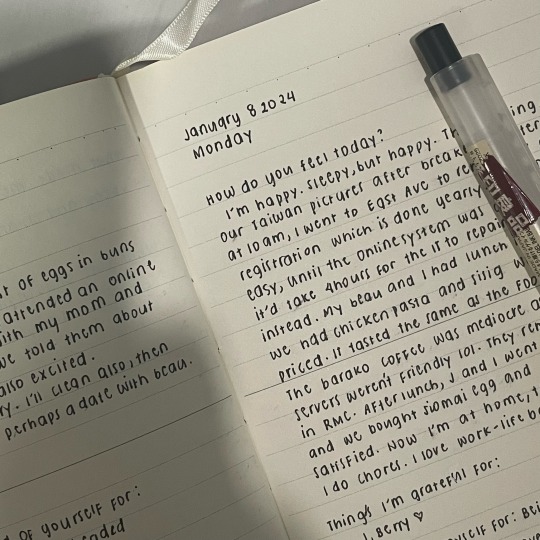 t of eggs in buns
attended an online
ith my mom and
we told them about
also excited.
ry. I'll clean also, then
perhaps a date with beau.
of yourself for:
ended
January 8 2024
Monday
How do you feel today?
I'm happy. Sleepy, but happy. Th ing
our Taiwan pictures after break
at 10am, I went to East Ave to re
registration which is done yearly
easy, until the online system was
it'd take 4hours for the IT to repair
instead. My beau and I had lunch
we had chicken pasta and sisig w
priced. It tasted the same as the foo
The barako coffee was mediocre a
servers weren't friendly lol. They re
in RMC. After lunch, J and I went
and we bought siomai egg and
satisfied. Now I'm at home, t
I do chores. I love work-life b
Things I'm grateful for:
1. Berry ♡
urself for: Bei
無印良品